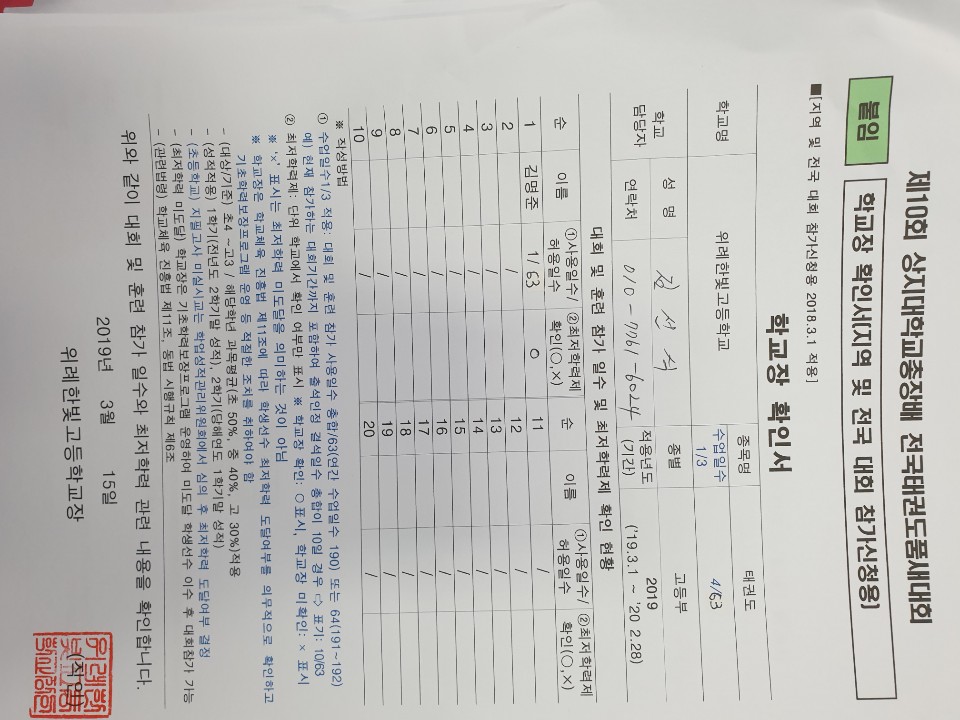 제10회 상지대학교총장배 전국태권도품새대회
붙임
학교장 확인서(지역 및 전국 대회 참가신청용)
■[지역 및 전국 대회 참가신청용 2018.3.1 적용]
학교장 확인서
학교명 위례한빛고등학교 종목명 태권도
수업일수 1/3 4/63
학교 담당자 성 명 종별 고등부
연락처 010-7761-6024 적용년도 (기간) 2019 ('19.3.1 ~ '20 2.28)
대회 및 훈련 참가 일수 및 최저학력제 확인 현황
순 이름 ①사용일수/허용일수 ②최저학력제 확인(○,×) 순 이름 ①사용일수/허용일수 ②최저학력제 확인(○,×)
1 김명준 1/63 ○ 11 /
2 / 12 /
3 / 13 /
4 / 14 /
5 / 15 /
6 / 16 /
7 / 17 /
8 / 18 /
9 / 19 /
10 / 20 /
※ 작성방법
① 수업일수1/3 적용: 대회 및 훈련 참가 사용일수 총합/63(연간 수업일수 190) 또는 64(191~192)
예) 현재 참가하는 대회기간까지 포함하여 출석인정 결석일수 총합이 10일 경우 ⇨ 표기: 10/63
② 최저학력제: 단위 학교에서 확인 여부만 표시 ※ 학교장 확인: ○표시, 학교장 미확인: × 표시
※ '×' 표시는 최저학력 미도달을 의미하는 것이 아님
※ 학교장은 학교체육 진흥법 제11조에 따라 학생선수 최저학력 도달여부를 의무적으로 확인하고
기초학력보장프로그램 운영 등 적절한 조치를 취하여야 함
- (대상/기준) 초4 ~고3 / 해당학년 과목평균(초 50%, 중 40%, 고 30%)적용
- (성적적용) 1학기(전년도 2학기말 성적), 2학기(당해연도 1학기말 성적)
- (초등학교) 지필고사 미실시교는 학업성적관리위원회에서 심의 후 최저학력 도달여부 결정
- (최저학력 미도달) 학교장은 기초학력보장프로그램 운영하여 미도달 학생선수 이수 후 대회참가 가능
- (관련법령) 학교체육 진흥법 제11조, 동법 시행규칙 제6조
위와 같이 대회 및 훈련 참가 일수와 최저학력 관련 내용을 확인합니다.
2019년 3월 15일
위례한빛고등학교장 (직인)